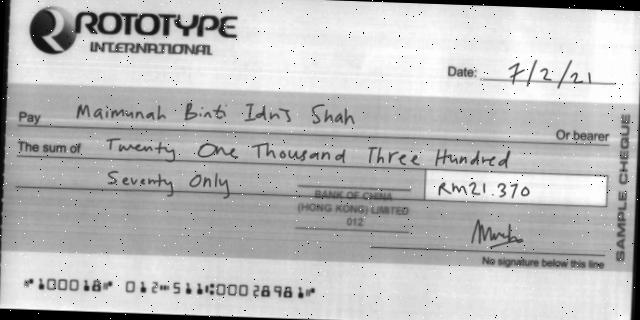 ROTOTYPE
INTERNATIONAL
Date: 7/2/21
Pay Maimunah Binti Idris Shah
Or bearer
The sum of Twenty One Thousand Three Hundred
Seventy Only
RM21.370
BANK OF CHINA
(HONG KONG) LIMITED
012
SAMPLE CHEQUE
No signature below this line
⑈100018⑈ 012⑉511⑆00028981⑈